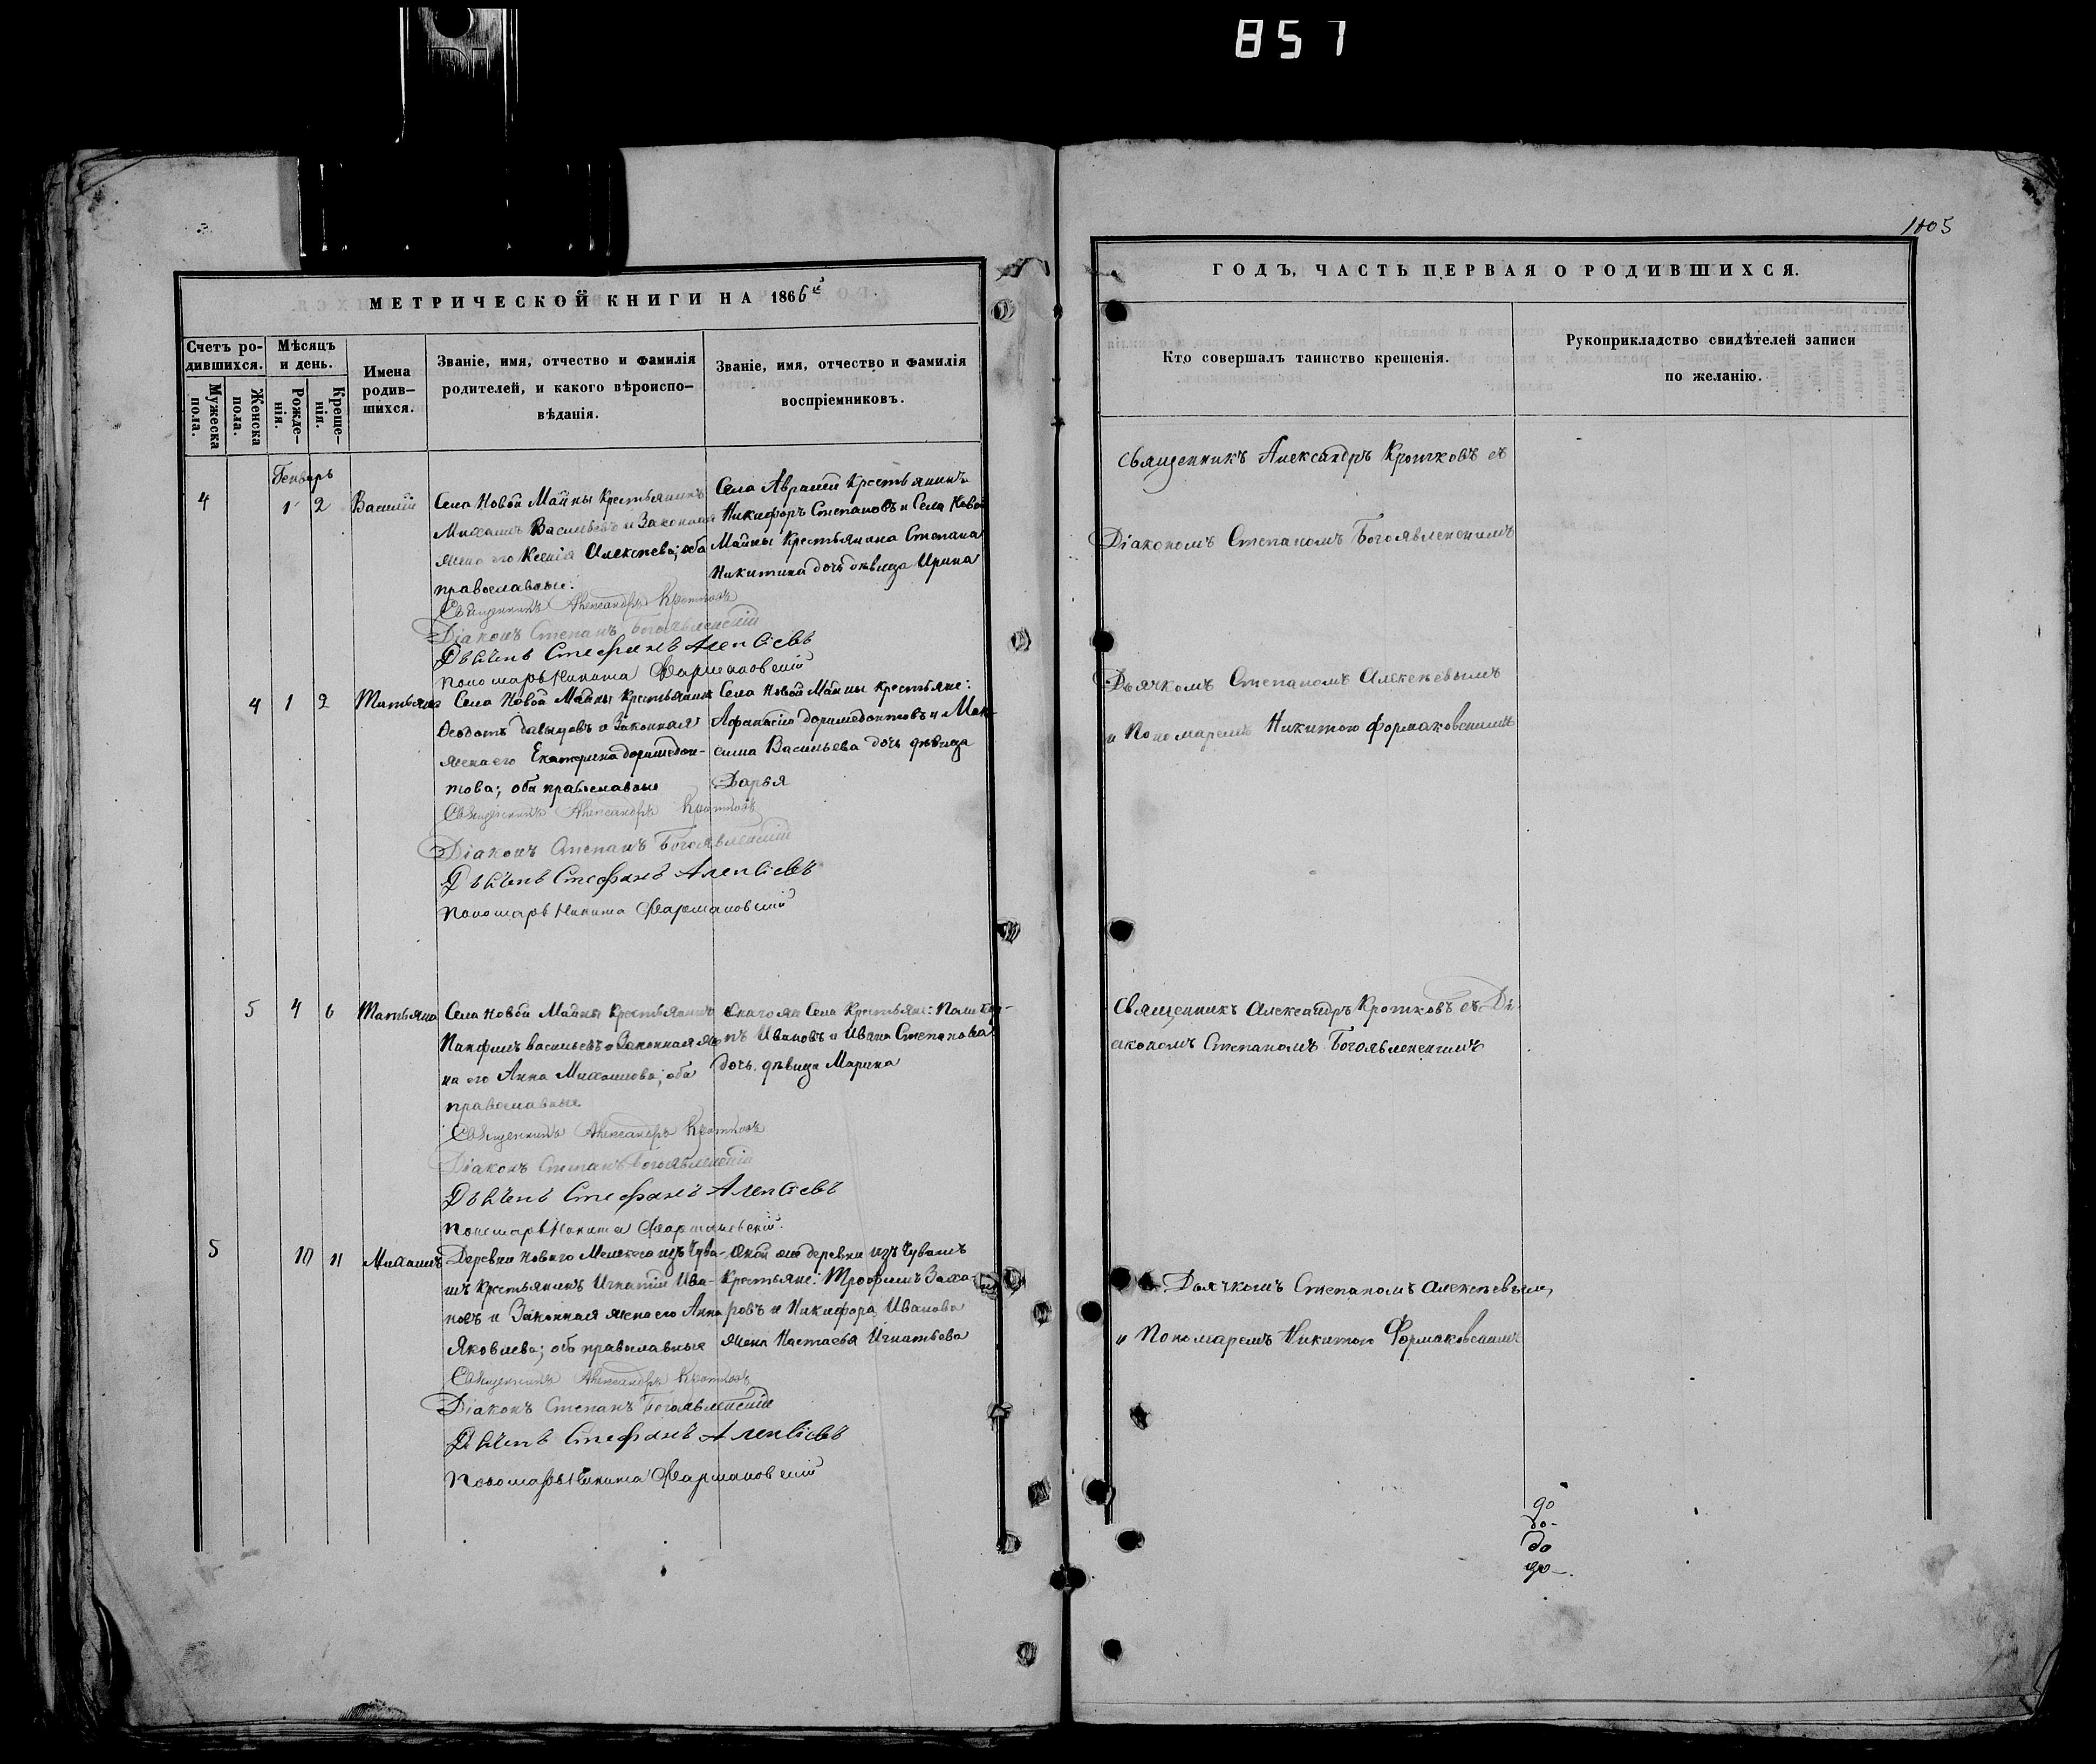 857
1105
МЕТРИЧЕСКОЙ КНИГИ НА 1866й
Счетъ ро-
дившихся.
Мужеска
пола.
Женска
пола.
Мѣсяцъ
и день.
Рожде-
нія.
Креще-
нія.
Имена
родив-
шихся.
Званіе, имя, отчество и фамилія
родителей, и какого вѣроиспо-
вѣданія.
Званіе, имя, отчество и фамилія
воспріемниковъ.
Генварь
4 1 2 Василій
Села Новой Майны крестьянинъ
Михаилъ Васильевъ и Законная
жена его Ксенія Алексѣева; оба
православные.
Села Авралей крестьянинъ
Никифоръ Степановъ и Села Новой
Майны Крестьянина Степана
Никитина дочь дѣвица Ирина
Священникъ Александръ Кротковъ
Діаконъ Степанъ Богоявленскій
Дьячекъ Стефанъ Алексѣевъ
Пономарь Никита Фармаковскій
4 1 2 Татьяна
Села Новой Майны крестьянинъ
Ѳеодотъ Давыдовъ и Законная
жена его Екатерина доримедон-
това; оба православные
Села Новой Майны крестьяне:
Афанасій доримедонтовъ и Мак-
сима Васильева дочь дѣвица
Дарья
Священникъ Александръ Кротковъ
Діаконъ Степанъ Богоявленскій
Дьячекъ Стефанъ Алексѣевъ
Пономарь Никита Фармаковскій
5 4 6 Татьяна
Села Новой Майны крестьянинъ
Панфилъ васильевъ и Законная же-
на его Анна Михаилова; оба
православные
Онаго же Села Крестьяне:
Ивановъ и Ивана Степанова
дочь дѣвица Марина
Священникъ Александръ Кротковъ
Діаконъ Степанъ Богоявленскій
Дьячекъ Стефанъ Алексѣевъ
Пономарь Никита Фармаковскій
5 10 11 Михаилъ
Деревни Новаго Мелекеса изъ Чува-
шъ Крестьянинъ Игнатій Ива-
новъ и Законная жена его Анна
Яковлева; оба православные
Оной же деревни изъ Чувашъ
Крестьяне: Трофимъ Заха-
ровъ и Никифора Иванова
жена Настасья Игнатьева
Священникъ Александръ Кротковъ
Діаконъ Степанъ Богоявленскій
Дьячекъ Стефанъ Алексѣевъ
Пономарь Никита Фармаковскій
ГОДЪ, ЧАСТЬ ПЕРВАЯ О РОДИВШИХСЯ.
Кто совершалъ таинство крещенія.
Рукоприкладство свидѣтелей записи
по желанію.
Священникъ Александръ Кротковъ съ
Діакономъ Степаномъ Богоявленскимъ
Дьячкомъ Степаномъ Алексѣевымъ
и Пономаремъ Никитою Формаковскимъ
Священникъ Александръ Кротковъ съ Ді-
акономъ Степаномъ Богоявленскимъ
Дьячкомъ Степаномъ Алексѣевымъ
и Пономаремъ Никитою Формаковскимъ